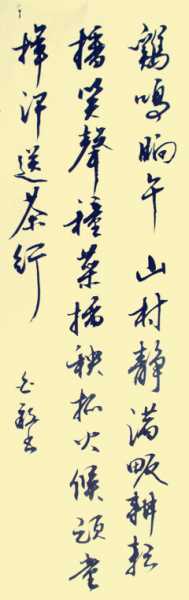 鷄鳴晌午山村靜滿畈耕耘
播笑聲種菜插秧抓火候頭
揮汗送茶行